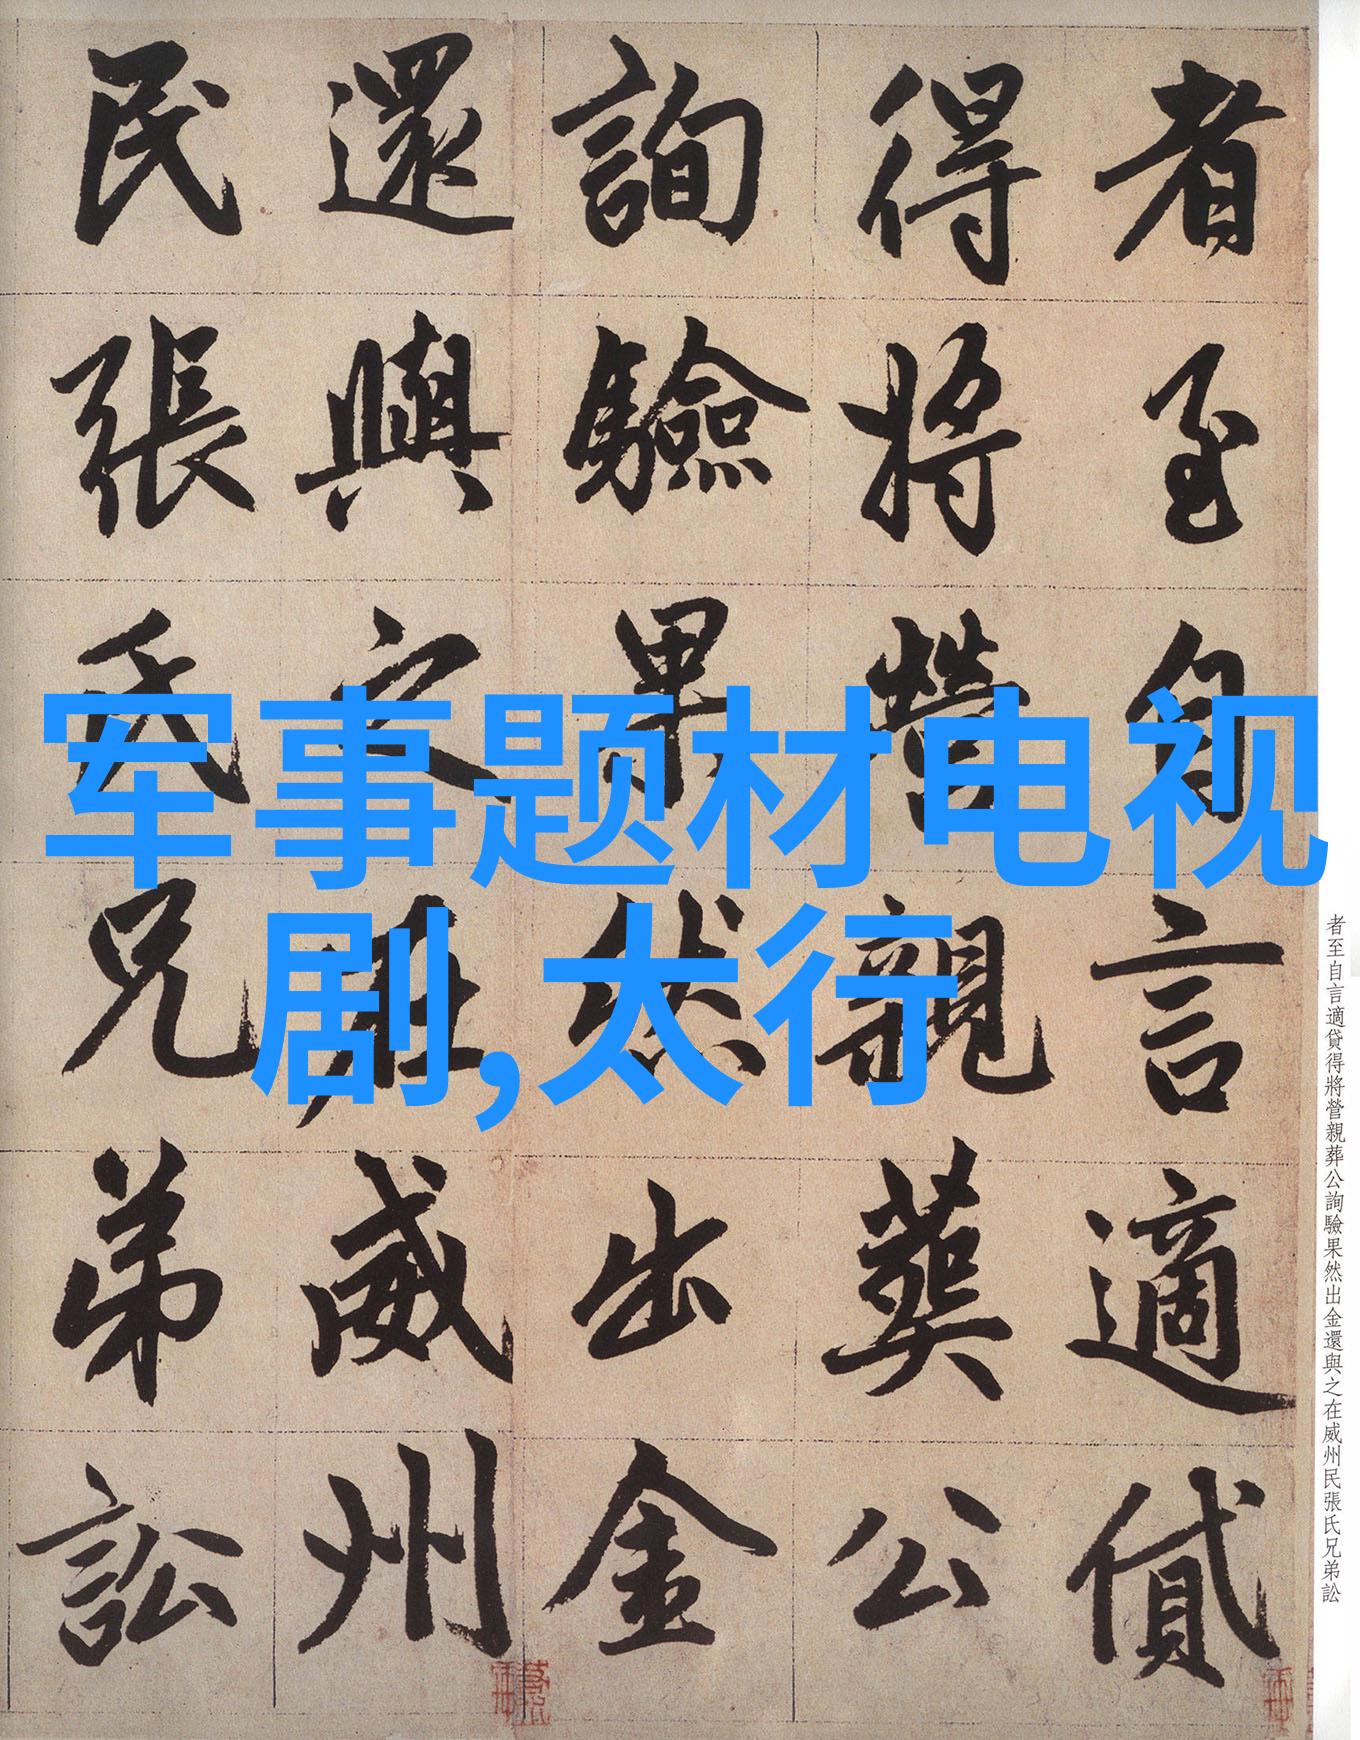 者至自言適貸
得將營親葬公
詢驗果然出金
還與之在威州
民張氏兄弟訟
军事题材电视
剧,太行
者至自言適貸得將營親葬公詢驗果然出金還與之在威州民張氏兄弟訟